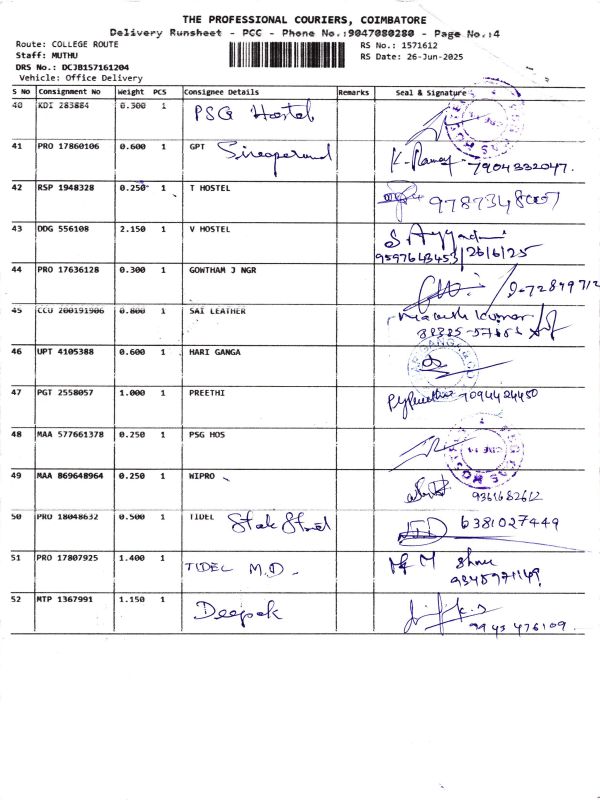 THE PROFESSIONAL COURIERS, COIMBATORE
Delivery Runsheet - PCC - Phone No.:9047080280 - Page No.:4
Route: COLLEGE ROUTE
Staff: MUTHU
DRS No.: DCJB157161204
Vehicle: Office Delivery
RS No.: 1571612
RS Date: 26-Jun-2025
S No Consignment No Weight PCS Consignee Details Remarks Seal & Signature
40 KDI 283884 0.300 1 PSG Hostel
41 PRO 17860106 0.600 1 GPT K. Ramay 7904332047.
42 RSP 1948328 0.250 1 T HOSTEL 9787348007
43 DDG 556108 2.150 1 V HOSTEL S. Ayyadurai
9597643453/26/6/25
44 PRO 17636128 0.300 1 GOWTHAM J NGR
45 CCU 200191906 0.800 1 SAI LEATHER
46 UPT 4105388 0.600 1 HARI GANGA
47 PGT 2558057 1.000 1 PREETHI 7094424450
48 MAA 577661378 0.250 1 PSG HOS
49 MAA 869648964 0.250 1 WIPRO 9361682612
50 PRO 18048632 0.500 1 TIDEL 6381027449
51 PRO 17807925 1.400 1 TIDEL M.D.
52 MTP 1367991 1.150 1 Deepak